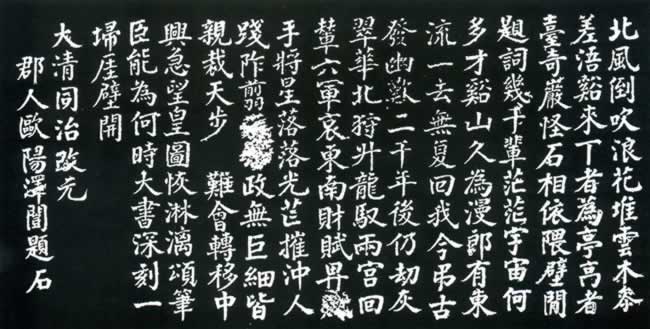 北風倒吹浪花堆雲木參
差浯谿來下者為亭高者
臺奇巖怪石相依隈壁間
題詞幾千輩茫茫宇宙何
多才谿山久為漫郎有東
流一去無复回我今弔古
發幽歎二千年後仍劫灰
翠華北狩升龍馭兩宮回
輦六軍哀東南財賦畀
手將星落落光芒摧沖人
踐阼翦政無巨細皆
親裁天步 難會轉移中
興急望皇圖恢淋漓頌筆
臣能為何時大書深刻一
埽厓壁開
大清同治改元
郡人歐陽澤闓題石